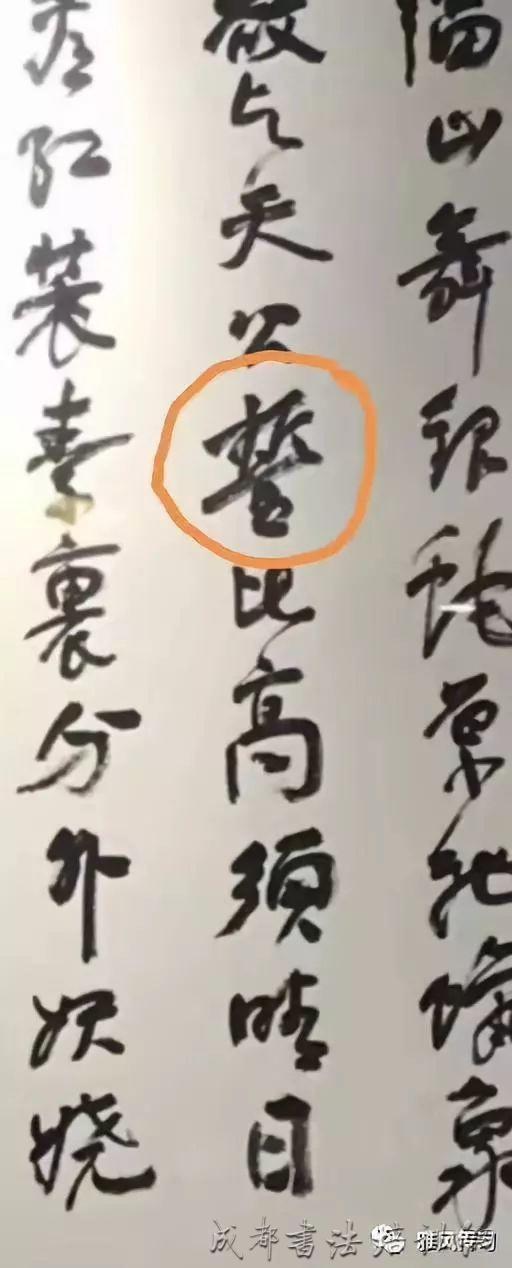 滔山舞银蛇原驰蜡象
与天公誓比高須晴日
看红装素裹分外妖娆
成都書法培训
雅风传习